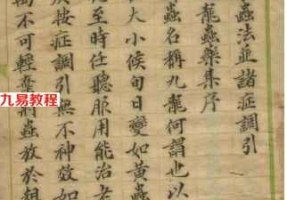 蟲法並諸症調引
龍蟲藥集序
蟲名稱九龍何謂也以
大小候旬日變如黃蟲
至時任聽服用能治
按症調引無不神效如
不可輕棄將蟲放於
九易教程